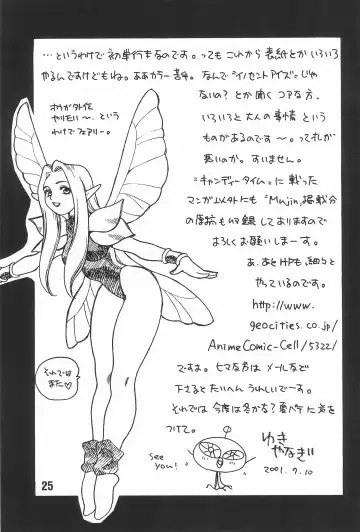 …というわけで初単行本なのです。ってもこれから表紙とかいろいろ
やるんですけどもね。ああカラー苦手。なんで『イノセントアイズ』じゃ
ないの?とか聞くコアな方、
いろいろと大人の事情という
ものがあるのです〜。ってそれが
悪いのか。すいません。
『キャンディータイム』に載った
マンガ以外にも"Mujin"掲載分
の原稿も収録しておりますので
よろしくお願いしまーす。
あ、あとHPも細々と
やっているのです。
http://www.
geocities.co.jp/
AnimeComic-Cell/5322/
ですよ。ヒマな方はメールなど
下さるとたいへんうれしいでーす。
それでは今度は冬かな?夏バテに気を
つけて。
ゆき
やなぎ
2001.7.10
やりたい〜。という
わけでフェアリー。
それでは
また♡
See
you!
25